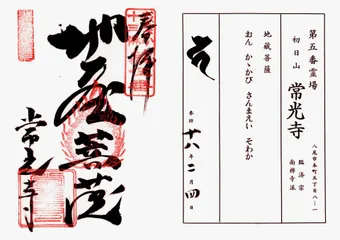 奉拝
地蔵菩薩
常光寺
第五番霊場
初日山
常光寺
八尾市本町五丁目八ー一
臨済宗
南禅寺派
地蔵菩薩
おん かゝかび さんまえい そわか
参拝 十八年二月四日